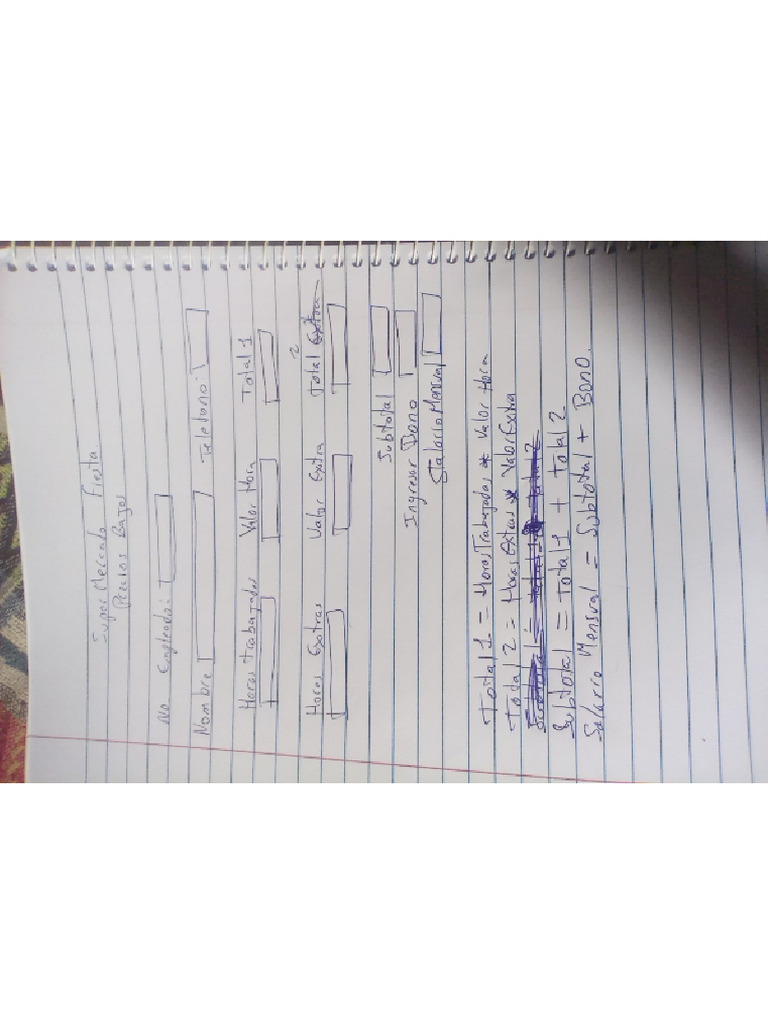 Super Mercado Fiesta
Precios Bajos
No Empleado:
Nombre Telefono:
Horas trabajadas Valor Hora Total 1
Horas Extras Valor Extra total 2
Subtotal
Ingresar Bono
Salario Mensual
Total 1 = Horas Trabajadas * Valor Hora
Total 2 = Horas Extras * Valor Extra
Subtotal = total 1 + total 2
Subtotal = total 1 + total 2
Salario Mensual = Subtotal + Bono.